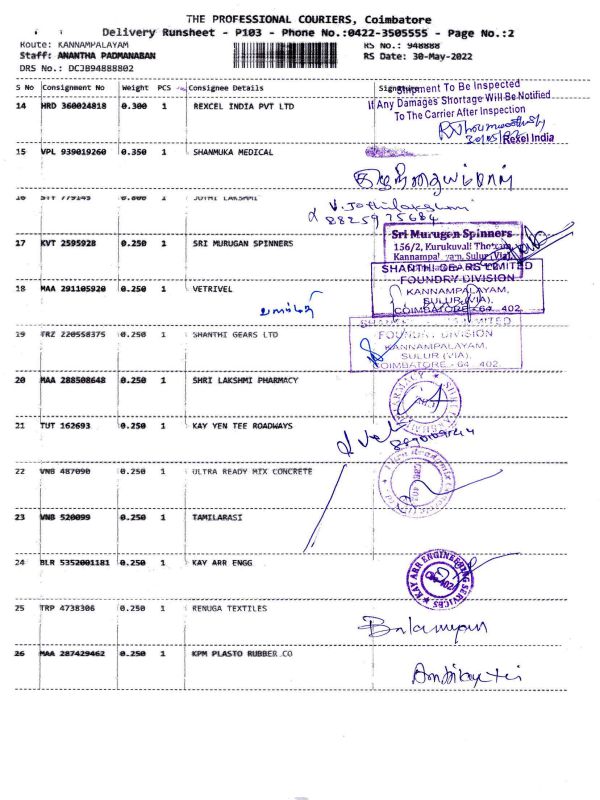 THE PROFESSIONAL COURIERS, Coimbatore
Delivery Runsheet - P103 - Phone No.:0422-3505555 - Page No.:2
Route: KANNAMPALAYAM RS No.: 948888
Staff: ANANTHA PADMANABAN RS Date: 30-May-2022
DRS No.: DCJB94888802
S No Consignment No Weight PCS Consignee Details Signature
Shipment To Be Inspected
14 HRD 360024818 0.300 1 REXCEL INDIA PVT LTD
If Any Damages Shortage Will Be Notified
To The Carrier After Inspection
Rexel India
15 VPL 939019260 0.350 1 SHANMUKA MEDICAL
16 779145 0.800 1 JOTHI LAKSHMI
V. Jothilakshmi
8825975684
17 KVT 2595928 0.250 1 SRI MURUGAN SPINNERS
Sri Murugan Spinners
156/2, Kurukuvali Thottam,
Kannampalayam, Sulur (Via)
SHANTHI GEARS LIMITED
FOUNDRY DIVISION
KANNAMPALAYAM,
SULUR (VIA),
COIMBATORE - 64 402.
18 MAA 291105920 0.250 1 VETRIVEL
19 TRZ 220558375 0.250 1 SHANTHI GEARS LTD
SHANTHI GEARS LIMITED
FOUNDRY DIVISION
KANNAMPALAYAM,
SULUR (VIA),
COIMBATORE - 64 402.
20 MAA 288508648 0.250 1 SHRI LAKSHMI PHARMACY
21 TUT 162693 0.250 1 KAY YEN TEE ROADWAYS
22 VNB 487090 0.250 1 ULTRA READY MIX CONCRETE
23 VNB 520099 0.250 1 TAMILARASI
24 BLR 5352001181 0.250 1 KAY ARR ENGG
KAY ARR ENGINEERING SERVICES
25 TRP 4738306 0.250 1 RENUGA TEXTILES
Balamurugan
26 MAA 287429462 0.250 1 KPM PLASTO RUBBER CO